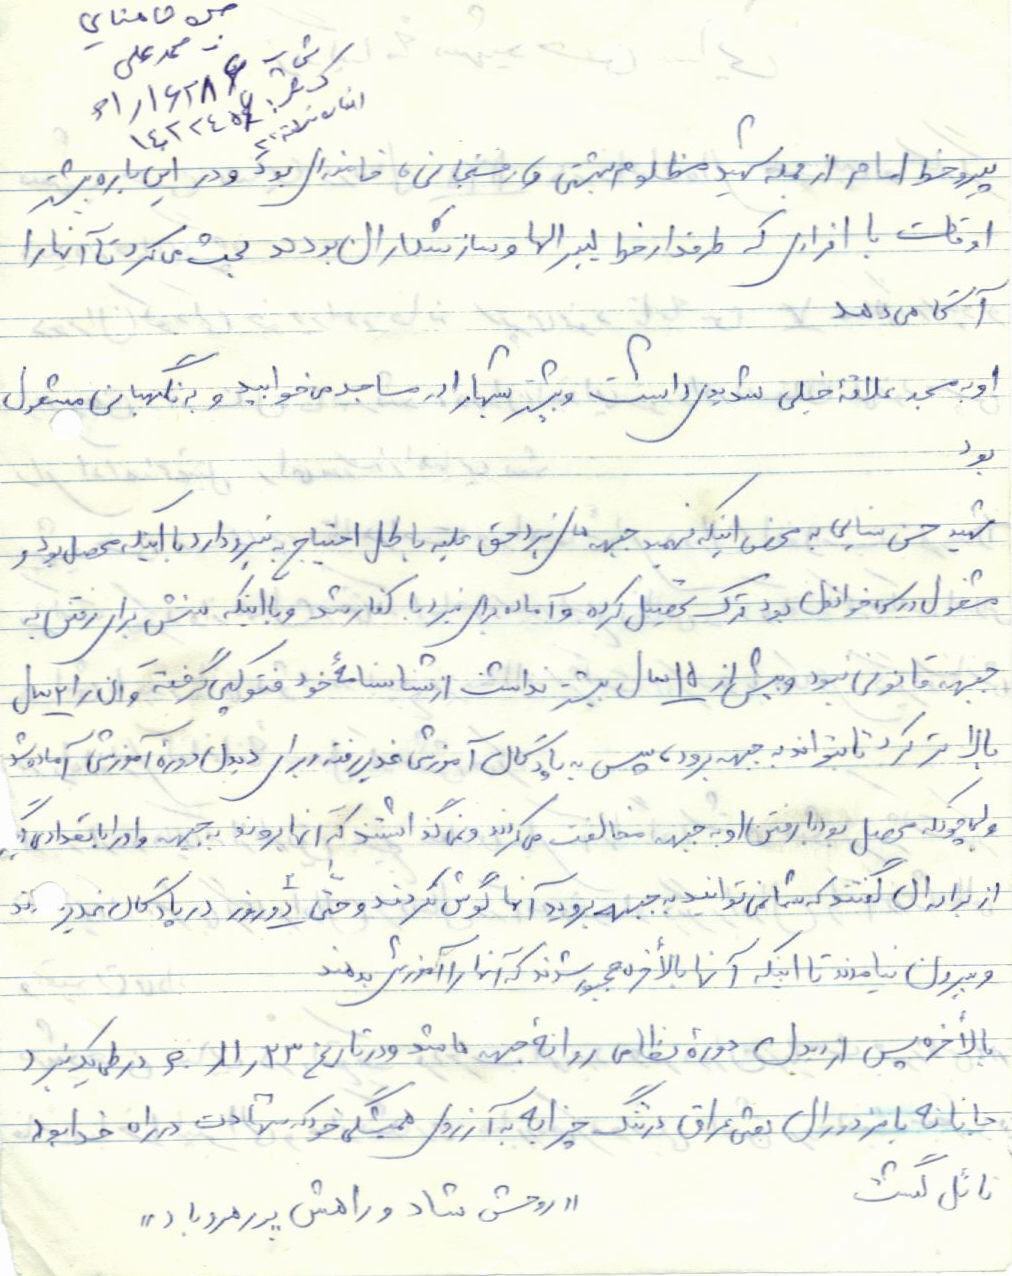 ف محمدعلی
ش پ
کد نفر: ۱۶۲۸۶
۱۴۲۲۴۵۶
پیرو خط امام از جمله شهید مظلوم بهشتی و رفسنجانی، خامنه‌ای بود و در این باره بیشتر
اوقات با افرادی که طرفدار خط لیبرالها و سازشکاران بودند بحث می‌کرد تا آنها را
آگاه می‌دهد
او به مسجد علاقهٔ خیلی شدیدی داشت و بیشتر شبها را در مساجد می‌خوابید و به نگهبانی مشغول
بود
شهید حسن سنایی به محض اینکه فهمید جبهه‌های نبرد حق علیه باطل احتیاج به نیرو دارد با اینکه محصل بود و
مشغول درس خواندن بود ترک تحصیل کرده و آماده برای نبرد با کفار شد و با اینکه سنش برای رفتن به
جبهه قانونی نبود و بیش از ۱۵ سال بیشتر نداشت از شناسنامهٔ خود فتوکپی گرفته و آن را ۲ سال
بالاتر کرد تا بتواند به جبهه برود، سپس به پادگان آموزشی غدیر رفته و برای دیدن دورهٔ آموزشی آماده شد
ولی چونکه محصل بود با رفتن او به جبهه مخالفت می‌کردند و نمی‌گذاشتند که آنها بروند به جبهه و او را با تعدادی دیگر
از برادران گفتند که شما نمی‌توانید به جبهه بروید آنها گوش نکردند و حتی دو روز در پادگان غدیر ماندند
و بیرون نیامدند تا اینکه آنها بالأخره مجبور شدند که آنها را آموزش بدهند
بالأخره پس از دیدن دورهٔ نظامی روانهٔ جبهه ها شد و در تاریخ ۲۳ر۱۱ر۶۰ در طی یک نبرد
جانانه با مزدوران بعثی عراق در تنگ چزابه به آرزوی همیشگی خود که شهادت در راه خدا بود
نائل گشت
«روحش شاد و راهش پر رهرو باد»